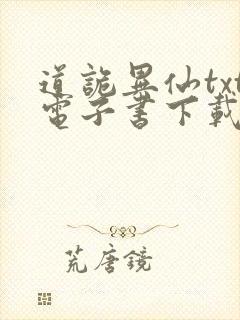 道詭異仙txt
電子書下載
荒唐鏡